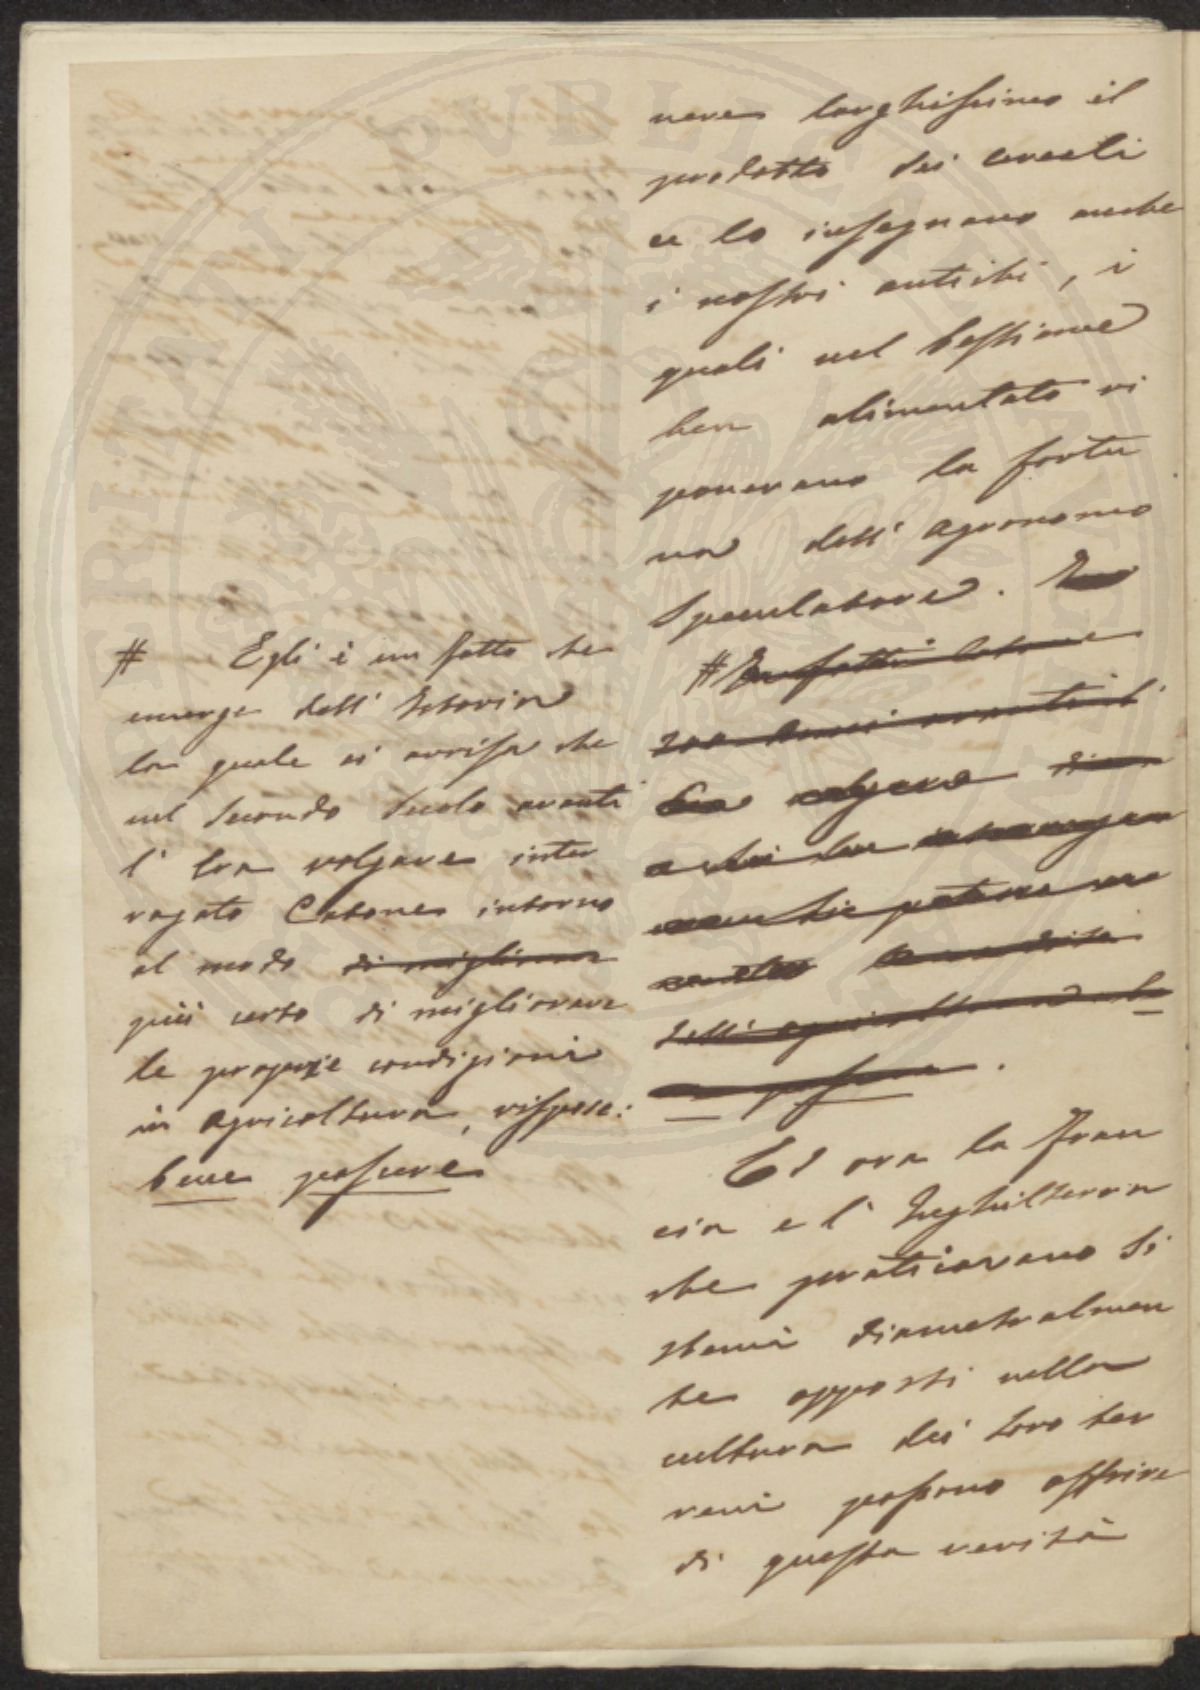 nere larghissimo il
prodotto dei cereali
ce lo insegnano anche
i nostri antichi, i
quali nel bestiame
ben alimentato ri
ponevano la fortu
na dell' agronomo
Speculatore.
# Infatti Catone
200 anni avanti l'
Era volgare
a chi lo interrogava
dell' agricoltura
.
Ed ora la Fran
cia e l' Inghilterra
che praticavano Si
stemi diametralmen
te opposti nella
cultura dei loro ter
reni possono offrire
di questa verità
# Egli è un fatto che
emerge dall' Istoria
la quale ci avvisa che
nel Secondo Secolo avanti
l' Era volgare inter
rogato Catone intorno
al modo di migliorar
più certo di migliorare
le proprie condizioni
in agricoltura, rispose:
bene pascere